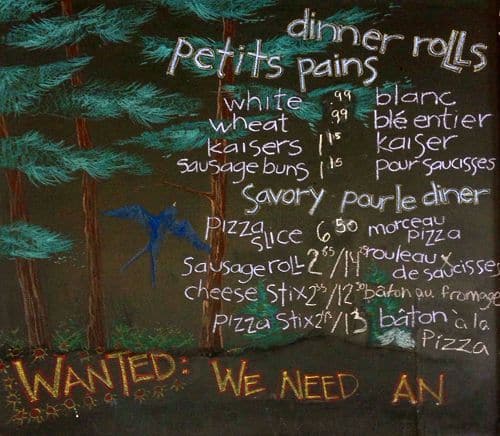 dinner rolls
petits pains
white .99 blanc
wheat .99 blé entier
kaisers 1 15 kaiser
sausage buns 1 15 pour saucisses
Savory pour le diner
pizza slice 6 50 morceau pizza
sausage roll 2 85/14 rouleau de saucisses
cheese stix 2 /12 bâton au fromage
pizza stix 2 /13 bâton à la Pizza
WANTED: WE NEED AN